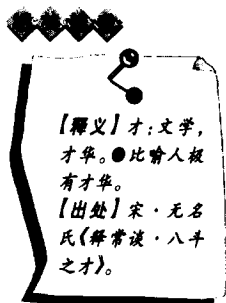 【释义】才：文学，
才华。●比喻人极
有才华。
【出处】宋·无名
氏《释常谈·八斗
之才》。